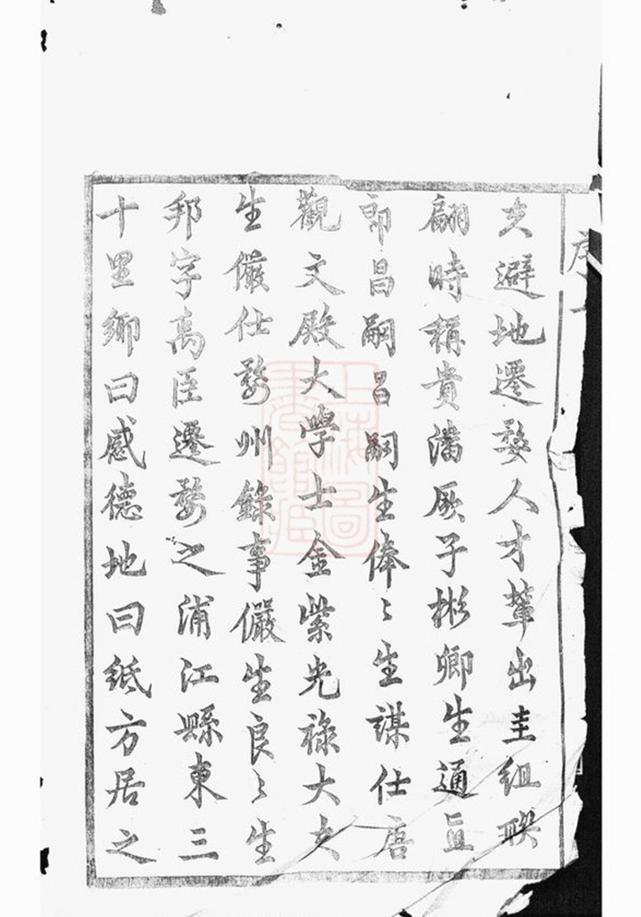 序
夫避地遷婺人才輩出圭組聯
翩時稱貴潘厥子彬卿生通直
郎昌嗣昌嗣生俸〻生謀仕唐
觀文殿大學士金紫光祿大夫
生儼仕婺州錄事儼生良〻生
邦字禹臣遷婺之浦江縣東三
十里鄉曰感德地曰紙方居之